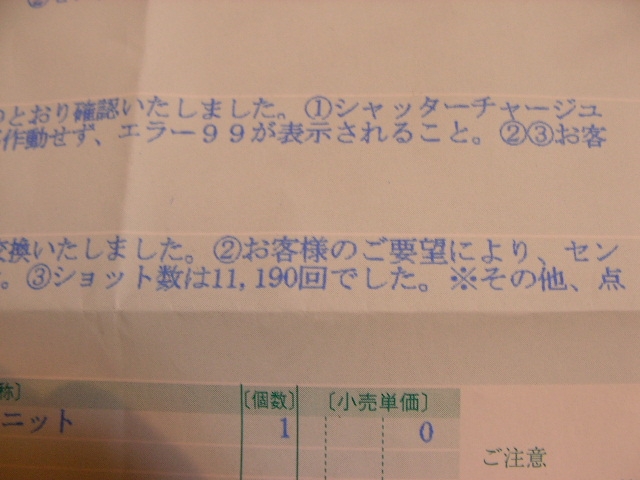 のとおり確認いたしました。①シャッターチャージユ
作動せず、エラー９９が表示されること。②③お客
交換いたしました。②お客様のご要望により、セン
。③ショット数は11,190回でした。※その他、点
称〕 〔個数〕 〔小売単価〕
ニット 1 0
ご注意